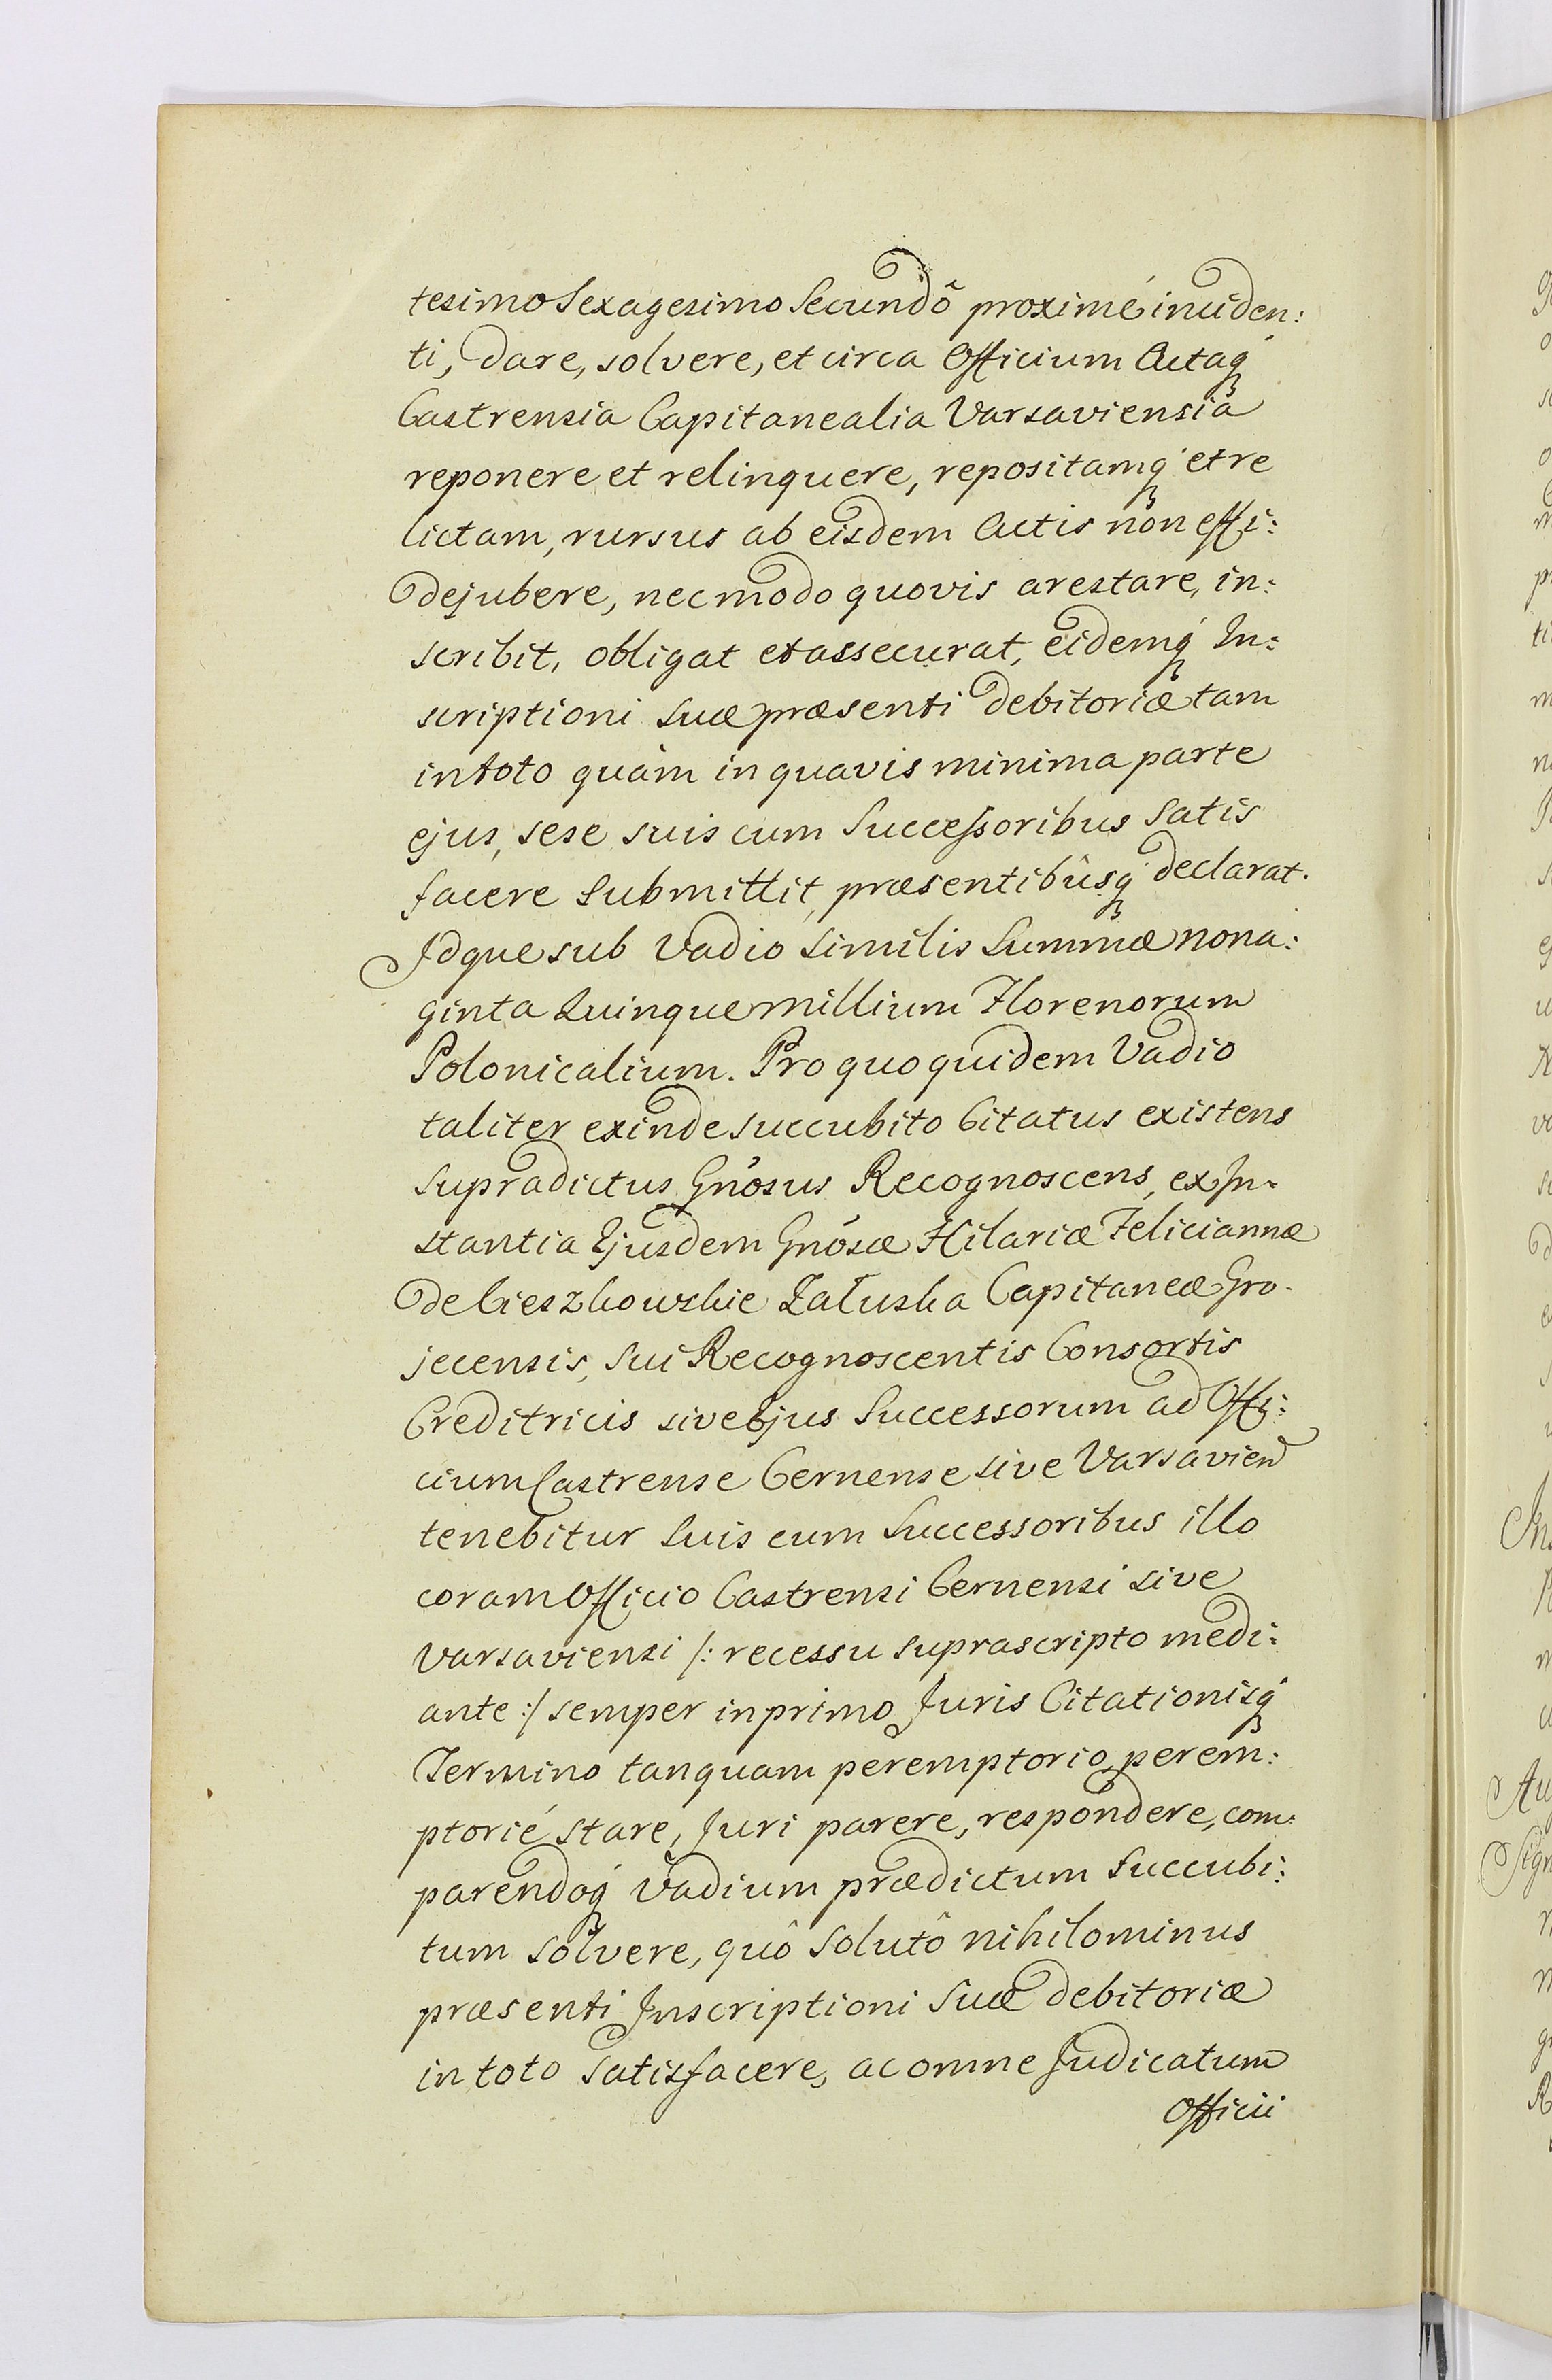 tesimo Sexagesimo Secundô proximé inciden:
ti, dare, solvere, et circa Officium Actaq́
Castrensia Capitanealia Varsaviensia
reponere et relinquere, repositamq́ et re
lictam, rursus ab eisdem Actis non effi:
dejubere, nec modo quovis arestare, in:
scribit, obligat et assecurat, eidemq́ In:
scriptioni suæ præsenti debitoriæ tam
in toto quàm in quavis minima parte
ejus, sese suis cum Successoribus satis
facere submittit, præsentibûsq́ declarat.
Idque sub Vadio similis Summæ nona:
ginta Quinque millium Florenorum
Polonicalium. Pro quo quidem Vadio
taliter exinde succubito Citatus existens
supradictus Gnósus Recognoscens, ex In-
stantia Ejusdem Gnósæ Hilariæ Feliciannæ
de Cieszkowskie Załuska Capitaneæ Gro-
jecensis, sui Recognoscentis Consortis
Creditricis sive Ejus Successorum ad Offi:
cium Castrense Cernense sive Varsavien
tenebitur suis cum Successoribus illo
coram Officio Castrensi Cernensi sive
Varsaviensi /: recessu suprascripto medi:
ante :/ semper in primo Juris Citationisq́
Termino tanquam peremptorio perem:
ptorié stare, Juri parere, respondere, com:
parendoq́ Vadium prædictum succubi:
tum solvere, quô solutô nihilominus
præsenti Inscriptioni suæ debitoriæ
in toto satisfacere, ac omne Judicatum
Officii